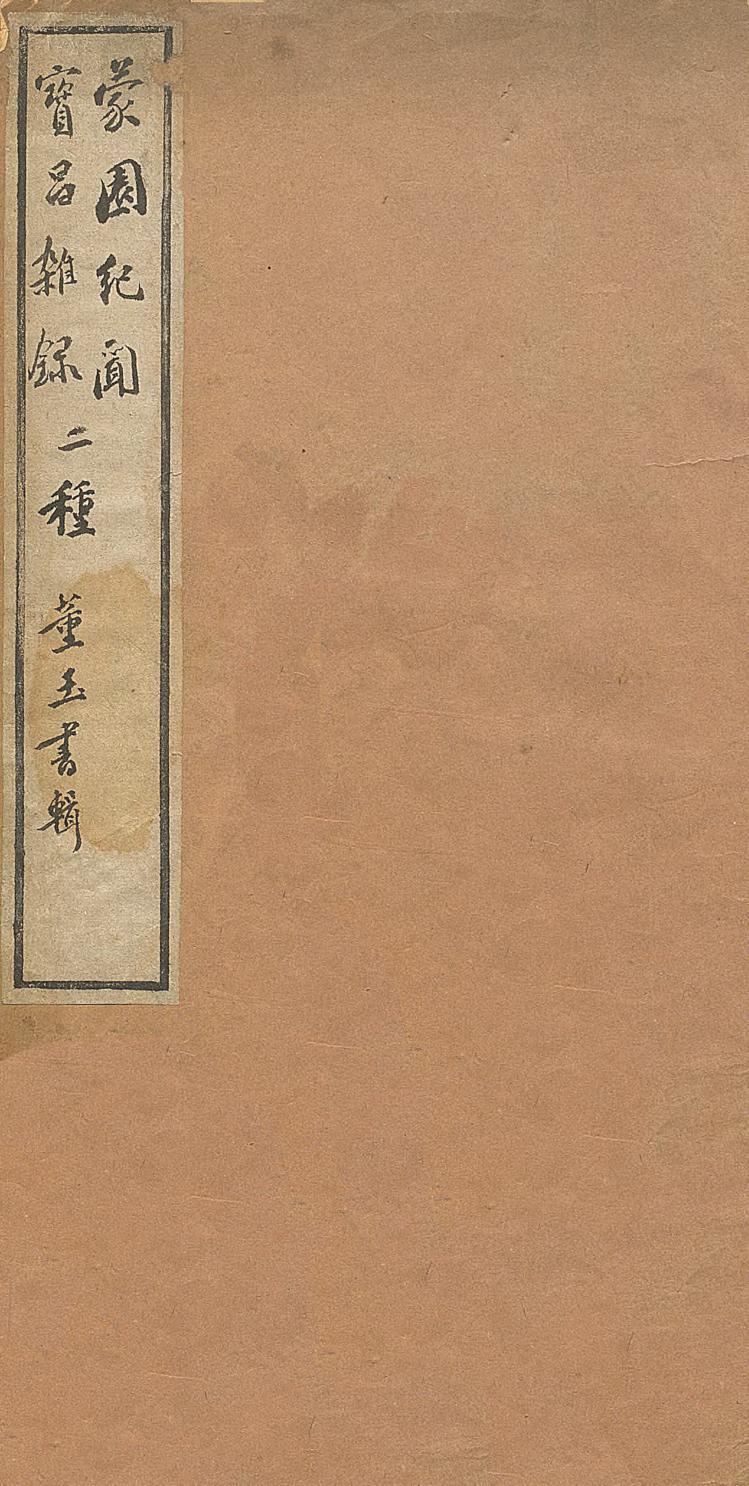 蒙園紀聞
寶昌雜録
二種 董玉書輯